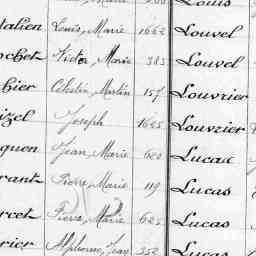 Louis
talien Louis, Marie 1662 Louvel
ochet Victor, Marie 383 Louvel
hier Célestin, Martin 157 Louvrier
izel Joseph 1625 Louvrier
guen Jean, Marie 620 Lucad
rant Pierre, Marie 119 Lucas
rcet Pierre, Marie 625 Lucas
rier Alphonse, Jean 352 Lucas